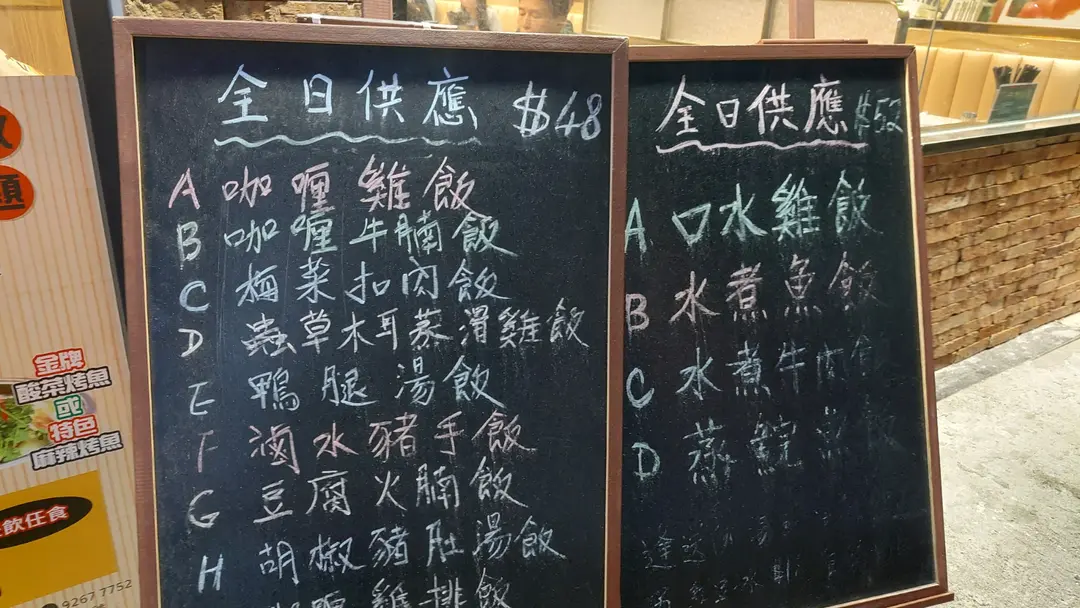 全日供應 $48
A 咖喱雞飯
B 咖喱牛腩飯
C 梅菜扣肉飯
D 蟲草木耳蒸滑雞飯
E 鴨腿湯飯
F 滷水豬手飯
G 豆腐火腩飯
H 胡椒豬肚湯飯
雞排飯
全日供應 $52
A 口水雞飯
B 水煮魚飯
C 水煮牛肉飯
D 蒸鯇魚飯
金牌
酸菜烤魚
或
特色
麻辣烤魚
飲任食
9267 7752